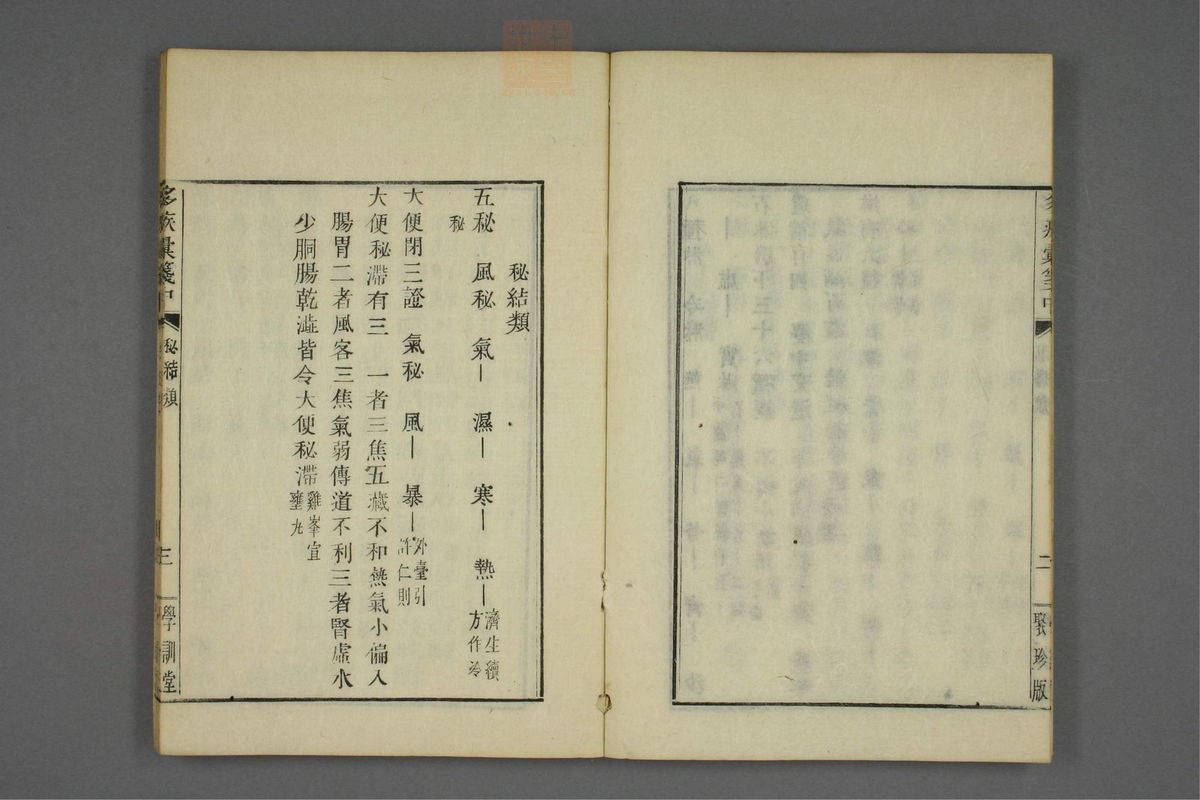 聚珍版
二
秘結類
五秘　風秘　氣｜　濕｜　寒｜　熱｜濟生續方作冷
秘
大便閉三證　氣秘　風｜　暴｜外臺引許仁則
大便秘滯有三　一者三焦五藏不和熱氣小偏入
腸胃二者風客三焦氣弱傳道不利三者腎虛水
少胴腸乾澁皆令大便秘滯雞峯宜壅尤
彙箋中　秘結類　三　學訓堂